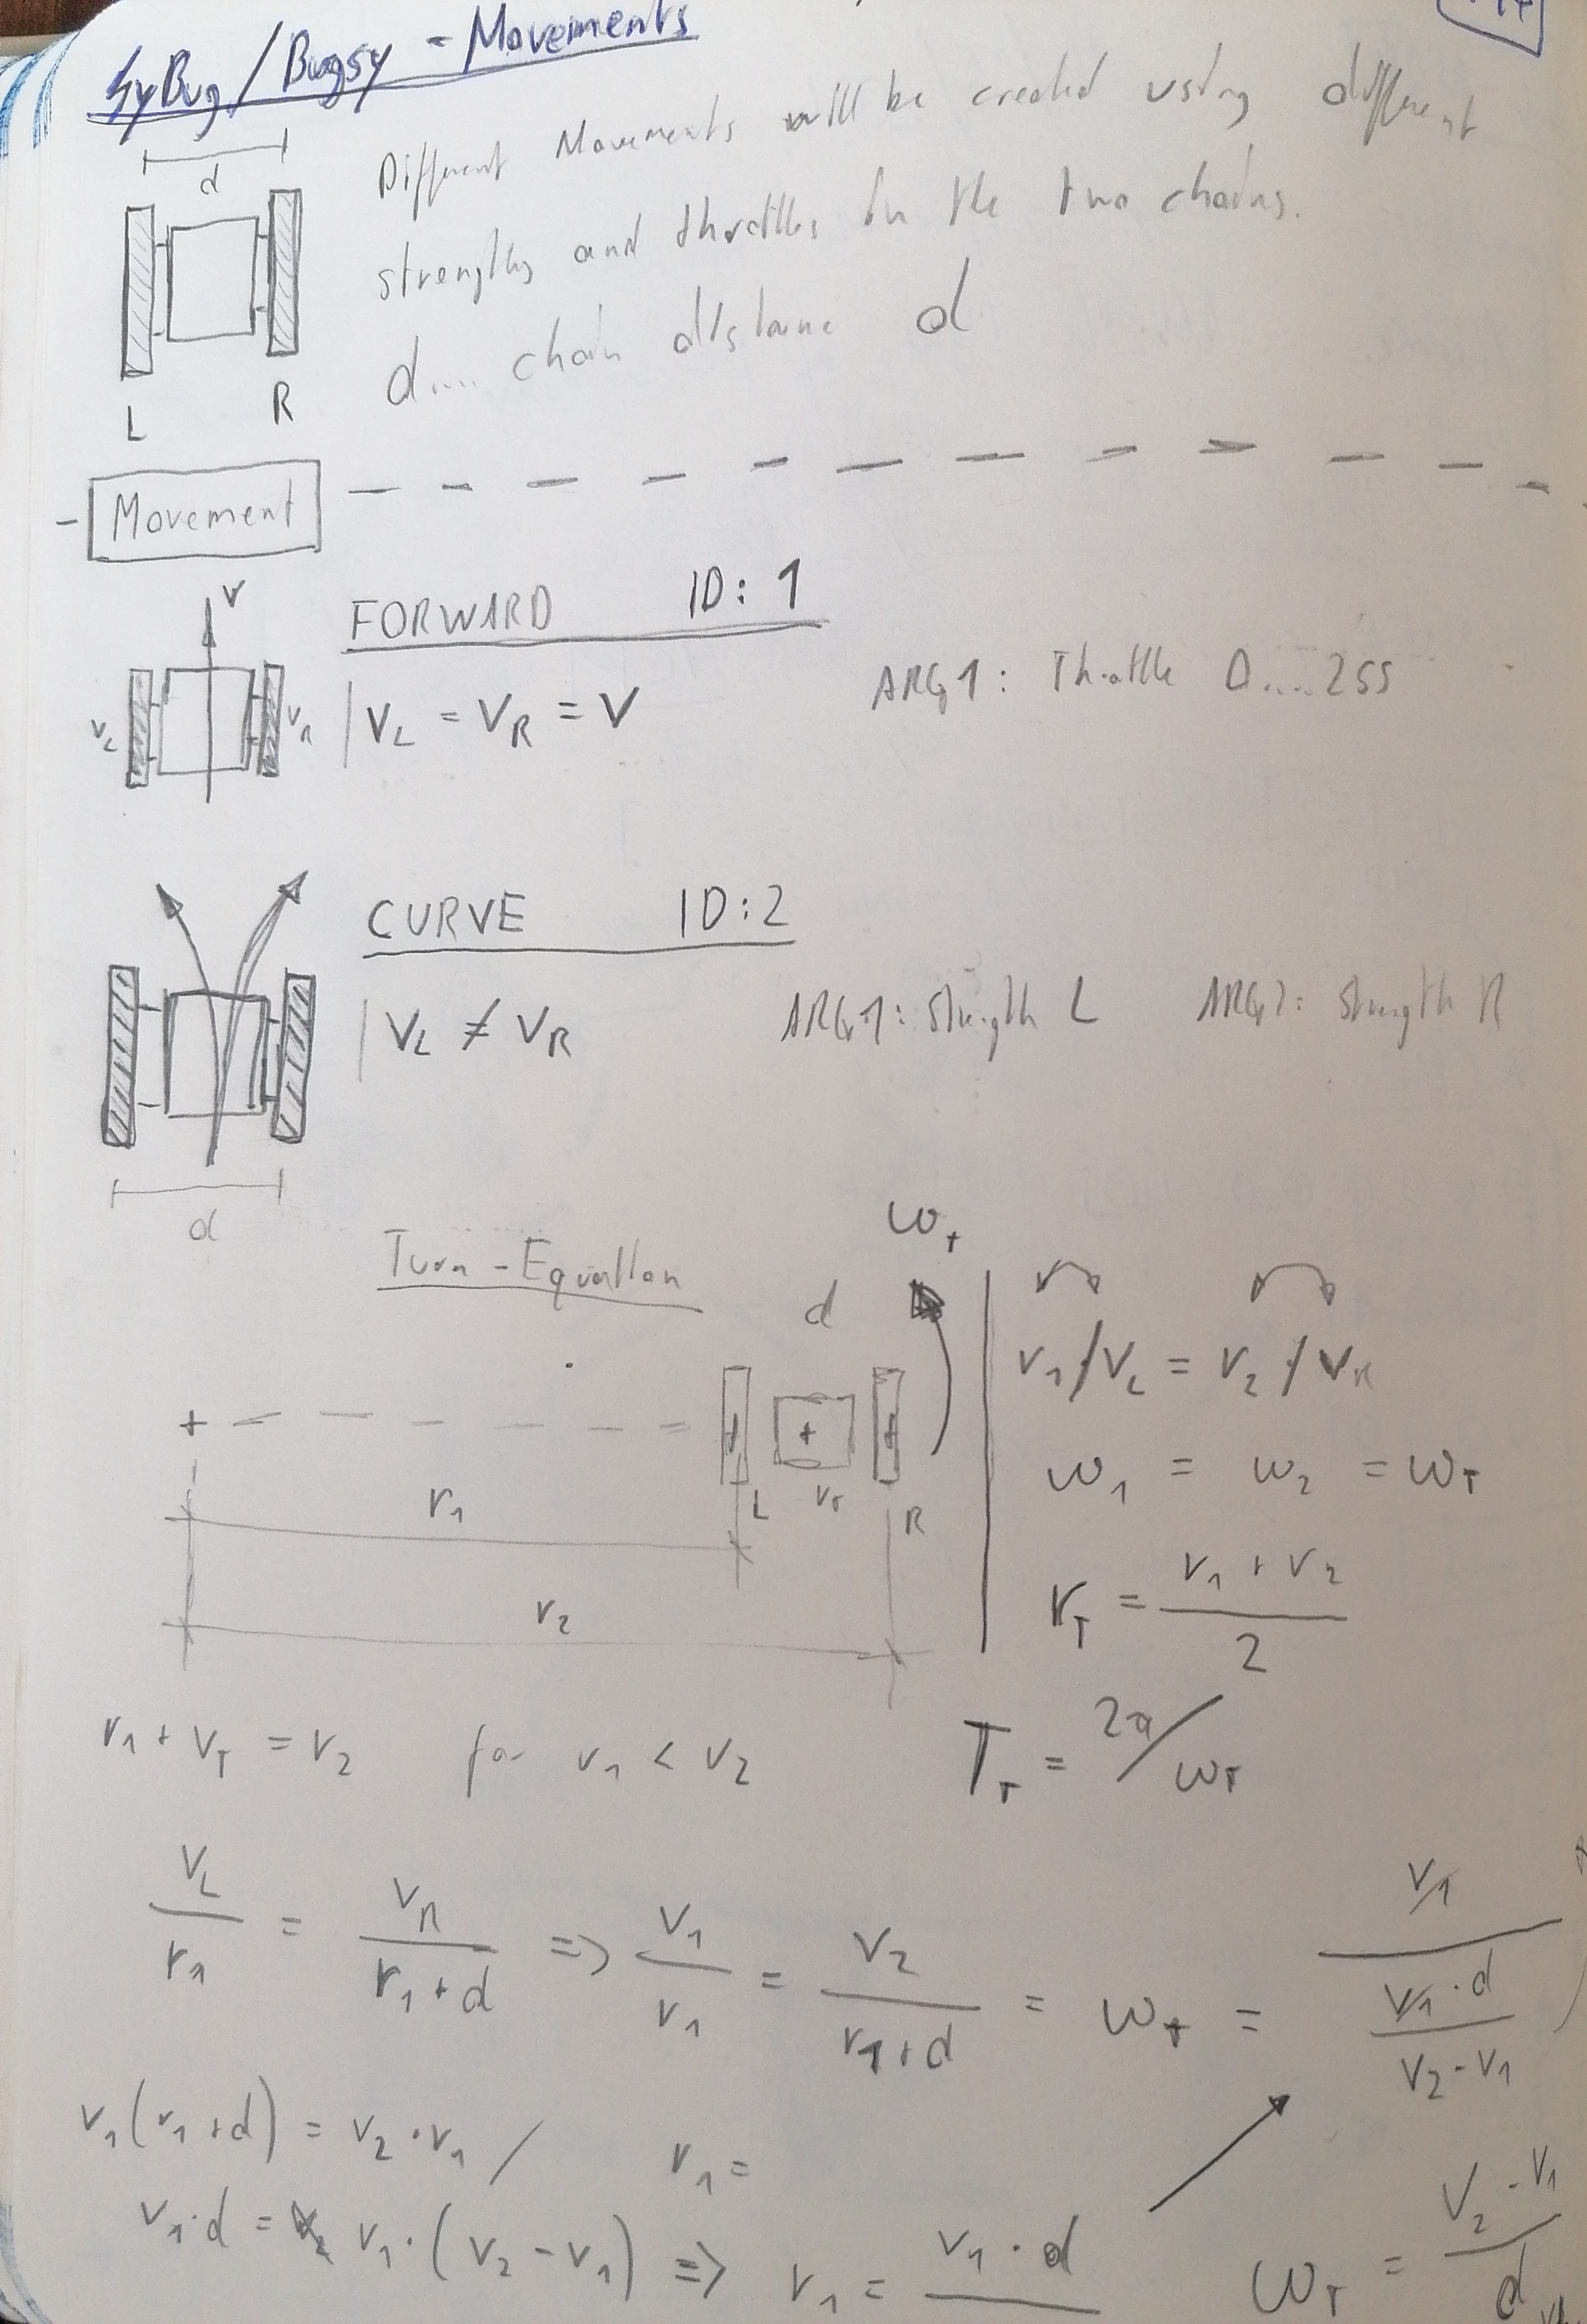 SyBug/Bugsy - Movements
d
Different Movements will be created using different
strengths and throttles on the two chains.
d.... chain distance d
L R
- Movement
v
FORWARD ID: 1
ARG1: Throttle 0....255
v_L v_R | v_L = v_R = v
CURVE ID:2
| v_L ≠ v_R ARG1: Strength L ARG2: Strength R
d
Turn-Equation
ω_T
d
v_1/v_L = v_2/v_R
ω_1 = ω_2 = ω_T
r_1
L v_T R
r_T = (r_1 + r_2)/2
r_2
r_1 + v_T = r_2 for v_1 < v_2 T_T = 2π/ω_T
v_L/r_1 = v_R/(r_1+d) => v_1/r_1 = v_2/(r_1+d) = ω_T = v_1/((v_1·d)/(v_2-v_1))
v_1(r_1+d) = v_2·r_1 / r_1 =
v_1·d = r_1·(v_2-v_1) => r_1 = v_1·d
ω_T = (v_2-v_1)/d